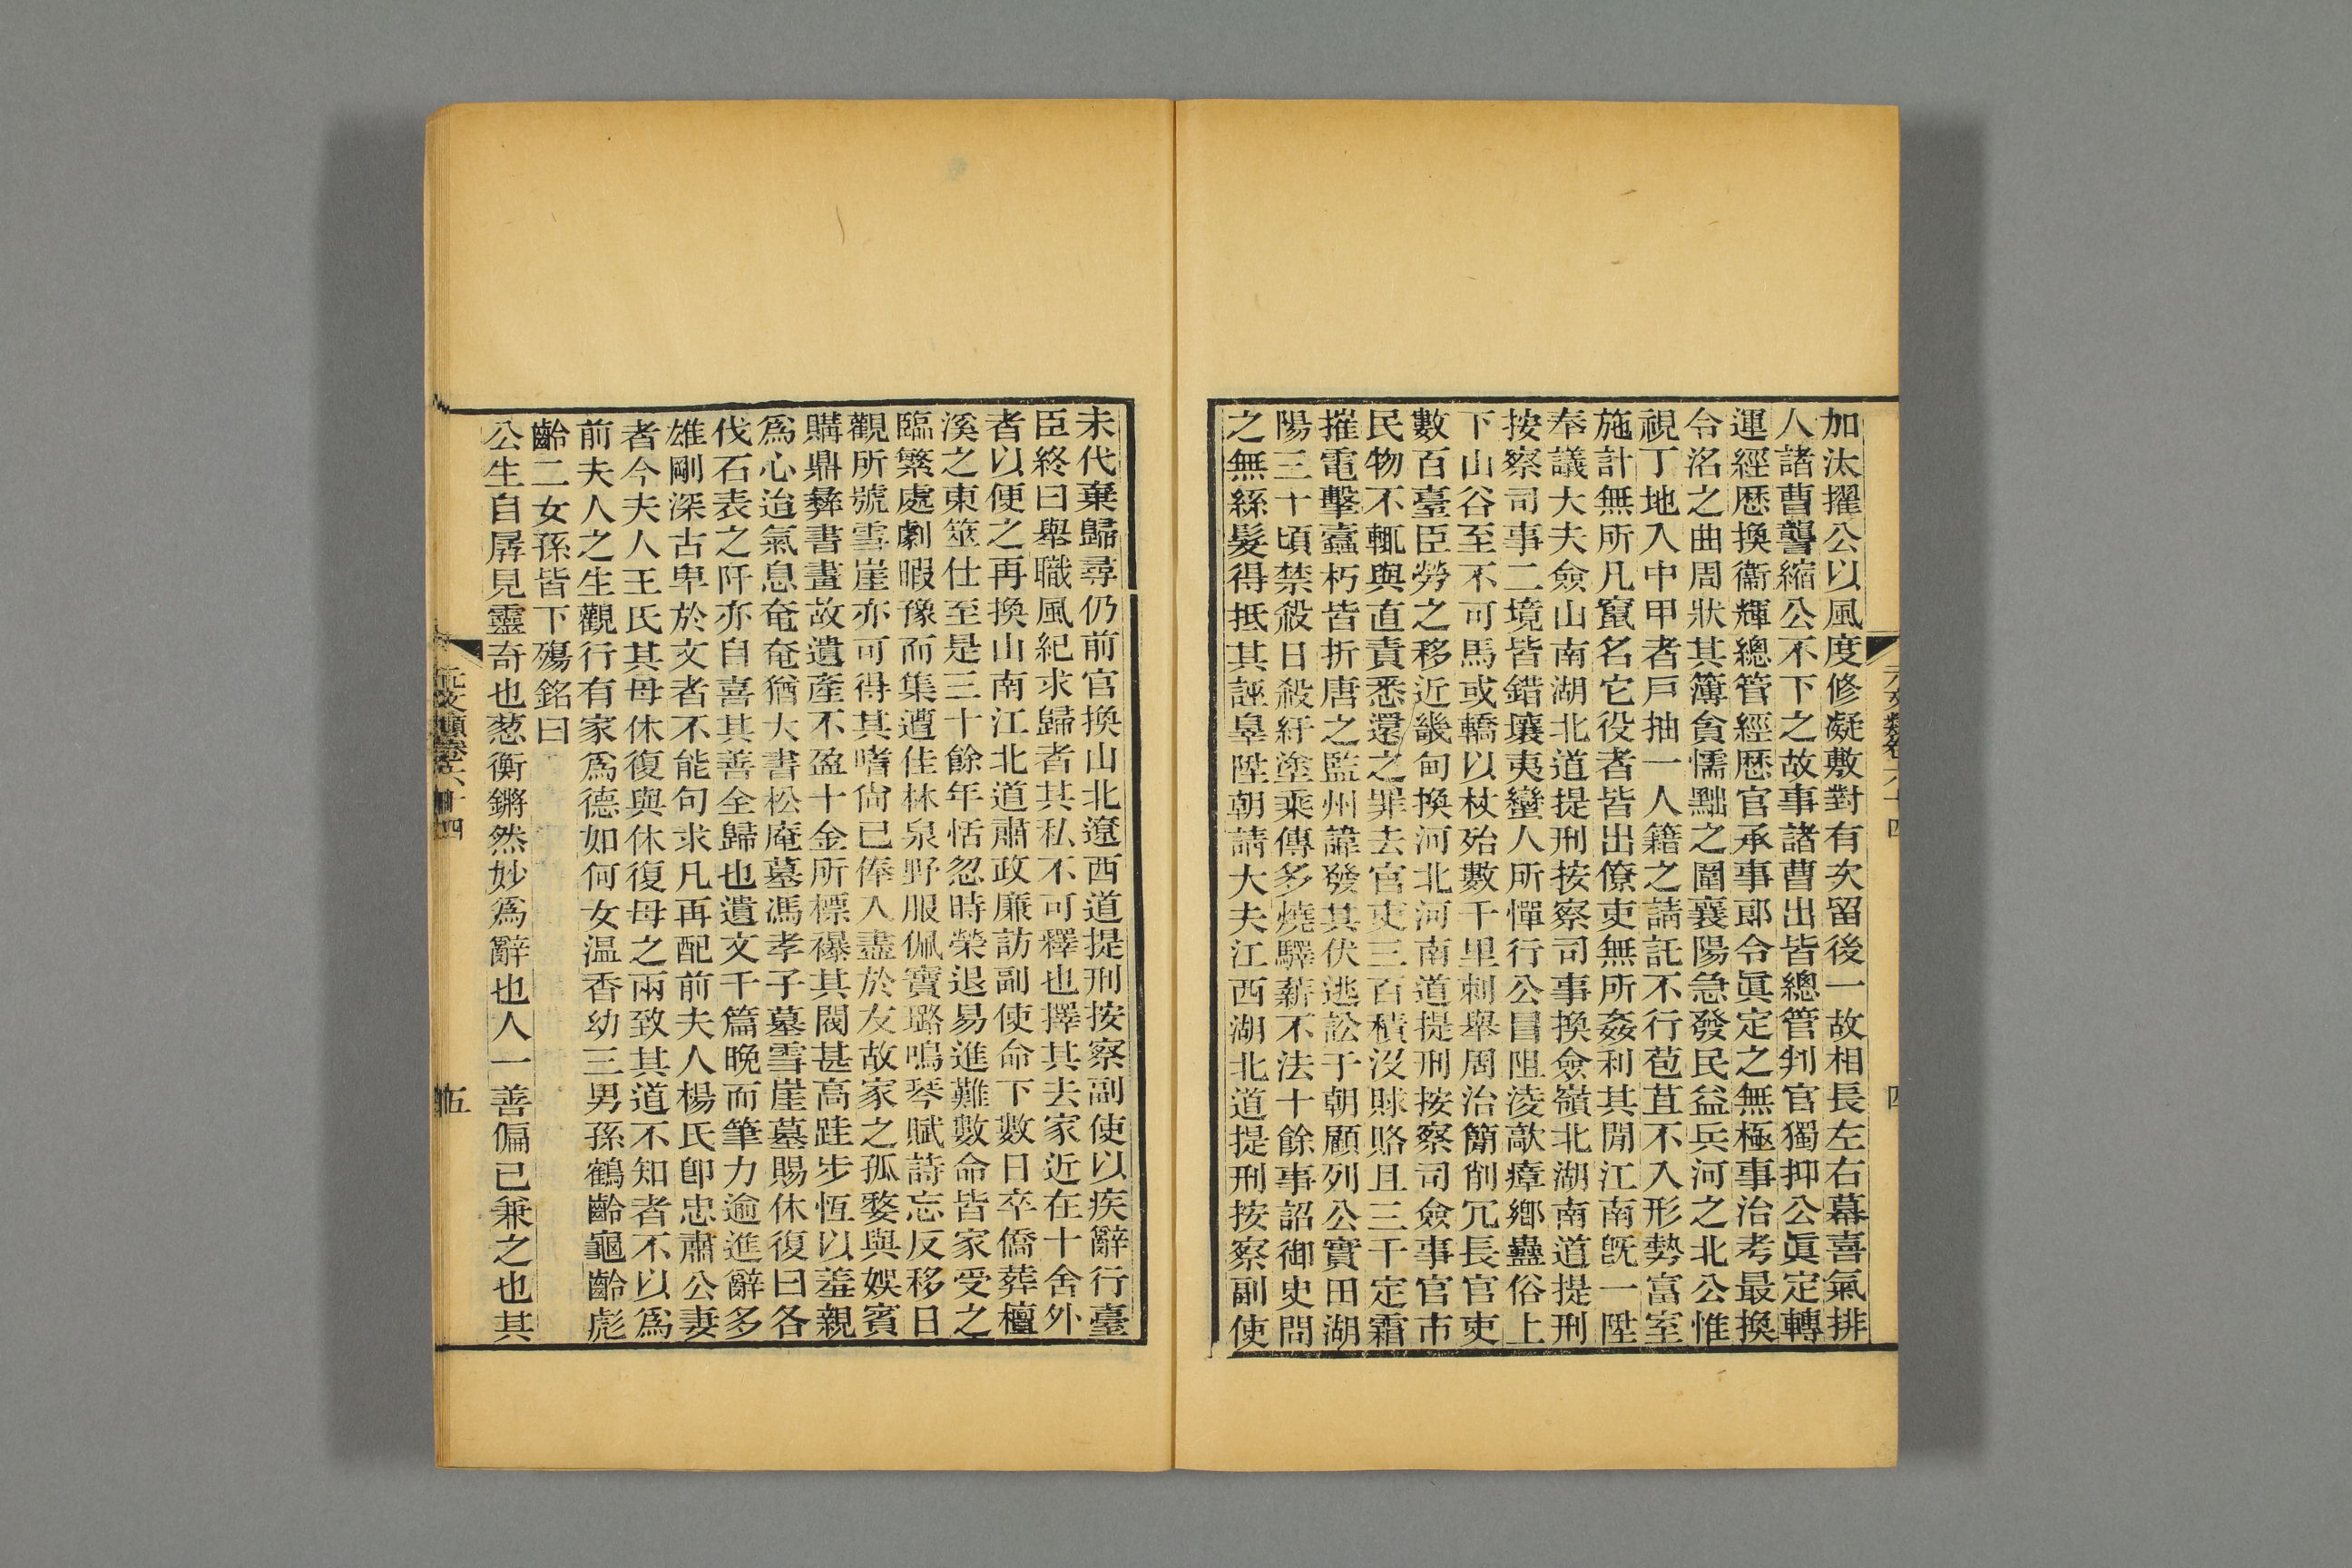 加汰擢公以風度修凝敷對有次留後一故相長左右幕喜氣排
人諸曹讋縮公不下之故事諸曹出皆總管判官獨抑公眞定轉
運經歷換衞輝總管經歷官承事郎令眞定之無極事治考最換
令洺之曲周狀其簿貪懦黜之圍襄陽急發民益兵河之北公惟
視丁地入中甲者戶抽一人籍之請託不行苞苴不入形勢富室
施計無所凡竄名它役者皆出僚吏無所姦利其閒江南旣一陞
奉議大夫僉山南湖北道提刑按察司事換僉嶺北湖南道提刑
按察司事二境皆錯壤夷蠻人所憚行公冒阻淩歊瘴鄉蠱俗上
下山谷至不可馬或轎以杖殆數千里刺舉周治簡削冗長官吏
數百臺臣勞之移近畿甸換河北河南道提刑按察司僉事官市
民物不輒與直責悉還之罪去官吏三百積沒賕賂且三千定霜
摧電擊蠹朽皆折唐之監州諱發其伏逃訟于朝顧列公實田湖
陽三十頃禁殺日殺紆塗乘傳多燒驛薪不法十餘事詔御史問
之無絲髮得抵其誣辠陞朝請大夫江西湖北道提刑按察副使
元文類卷六十四
四
未代棄歸尋仍前官換山北遼西道提刑按察副使以疾辭行臺
臣終曰舉職風紀求歸者其私不可釋也擇其去家近在十舍外
者以便之再換山南江北道肅政廉訪副使命下數日卒僑葬檀
溪之東筮仕至是三十餘年恬忽時榮退易進難數命皆家受之
臨繁處劇暇豫而集遭佳林泉野服佩寶璐鳴琴賦詩忘反移日
觀所號雪崖亦可得其嗜尙已俸入盡於友故家之孤嫠與娛賓
購鼎彝書畫故遺產不盈十金所標襮其閥甚高跬步恆以羞親
爲心迨氣息奄奄猶大書松庵墓馮孝子墓雪崖墓賜休復曰各
伐石表之阡亦自喜其善全歸也遺文千篇晚而筆力逾進辭多
雄剛深古卑於文者不能句求凡再配前夫人楊氏卽忠肅公妻
者今夫人王氏其母休復與休復母之兩致其道不知者不以爲
前夫人之生觀行有家爲德如何女温香幼三男孫鶴齡龜齡彪
齡二女孫皆下殤銘曰
公生自孱見靈奇也葱衡鏘然妙爲辭也人一善偏已兼之也其
元文類卷六十四
五